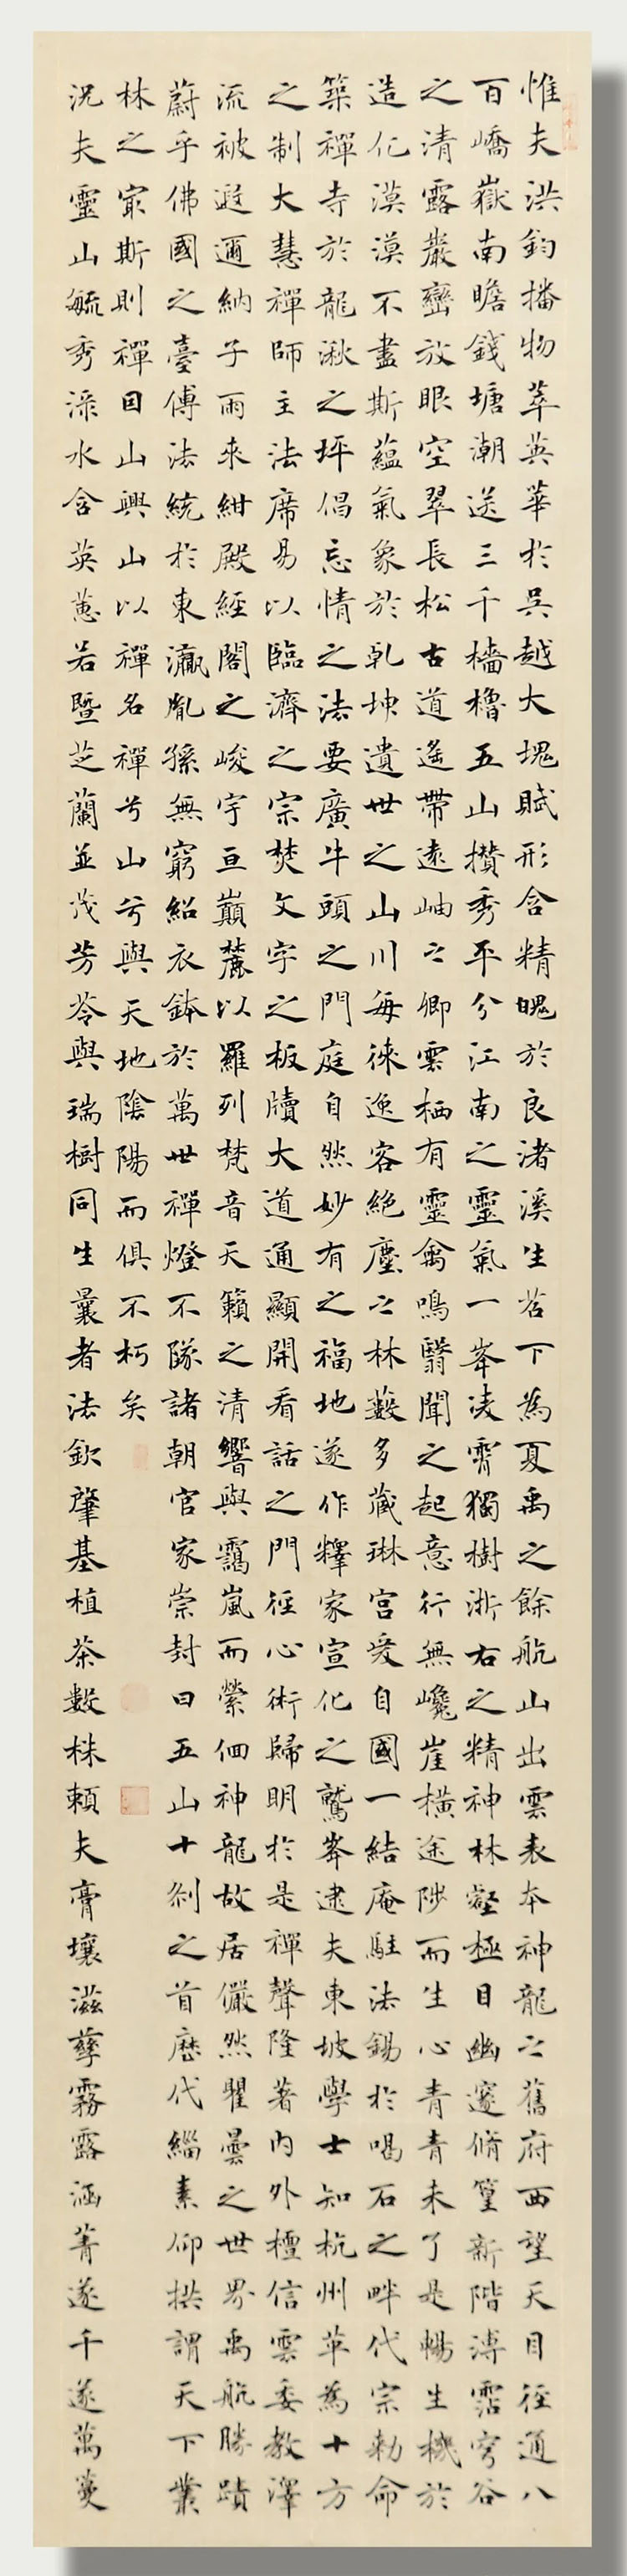 惟夫洪鈞播物萃英華於吳越大塊賦形含精魄於良渚溪生苕下為夏禹之餘航山出雲表本神龍之舊府西望天目徑通八
百嶠嶽南瞻錢塘潮送三千檣櫓五山攢秀平分江南之靈氣一峯凌霄獨樹浙右之精神林壑極目幽邃脩篁新階溥霑穹谷
之清露叢巒放眼空翠長松古道遙帶遠岫之卿雲栖有靈禽鳴翳聞之起意行無巉崖橫途陟而生心青青未了是暢生機於
造化漠漠不盡斯蘊氣象於乹坤遺世之山川每徠逸客絕塵之林藪多藏琳宮爰自國一結庵駐法錫於喝石之畔代宗勅命
築禪寺於龍湫之坪倡忘情之法要廣牛頭之門庭自然妙有之福地遂作釋家宣化之鷲峯逮夫東坡學士知杭州革為十方
之制大慧禪師主法席易以臨濟之宗焚文字之板牘大道通顯開看話之門徑心術歸明於是禪聲隆著內外檀信雲委教澤
流被遐邇納子雨來紺殿經閣之峻宇亘巔麓以羅列梵音天籟之清響與靄嵐而縈徊神龍故居儼然瞿曇之世界禹航勝蹟
蔚乎佛國之臺傅法統於東瀛胤孫無窮紹衣鉢於萬世禪燈不隊諸朝官家崇封曰五山十刹之首歷代緇素仰拱謂天下叢
林之宗斯則禪因山興山以禪名禪兮山兮與天地陰陽而俱不朽矣
況夫靈山毓秀淥水含英蕙若暨芝蘭並茂芳苓與瑞樹同生曩者法欽肇基植茶數株賴夫膏壤滋孳霧露涵菁遂千遂萬蔓